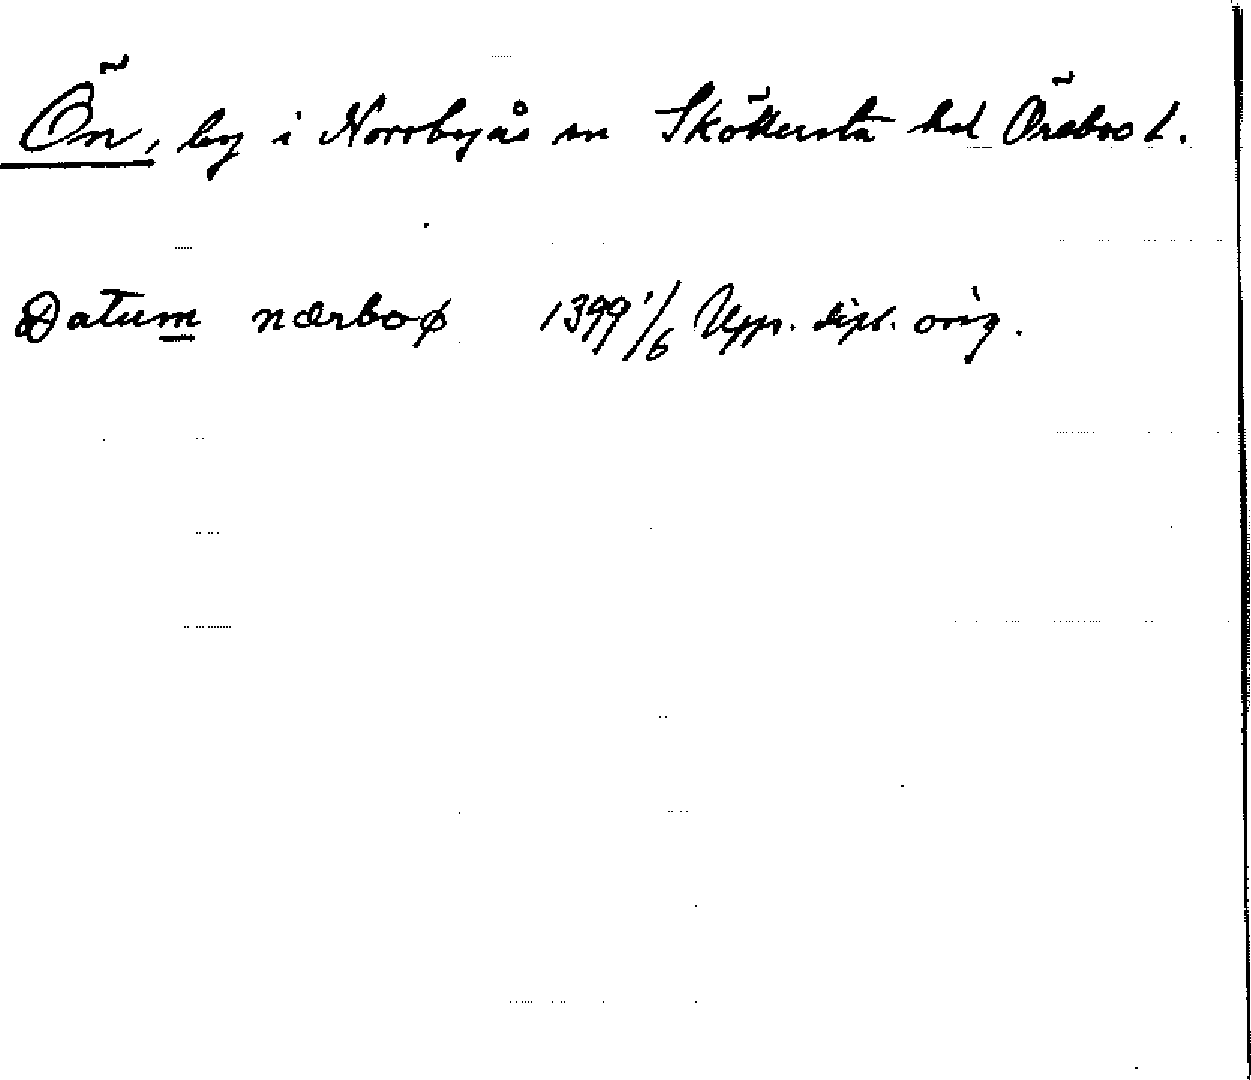 Ön, by i Norrbyås sn Sköllersta hd Örebro l.
Datum nærboø 1399 1/6 Upps. dipl. orig.